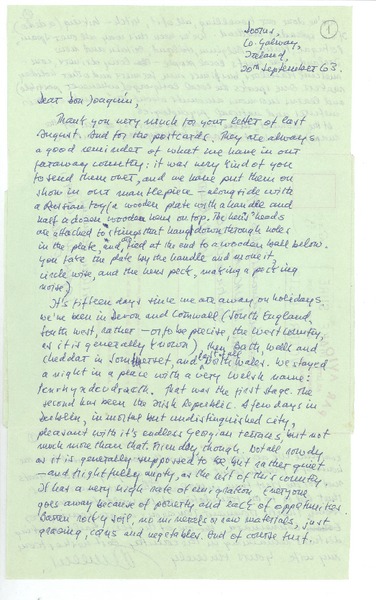 1
Doorus,
Co. Galway,
Ireland,
20th September 63.
Dear Don Joaquín,
Thank you very much for your letter of last
August. And for the postcards. They are always
a good reminder of what we have in our
faraway country: it was very kind of you
to send them over, and we have put them on
show in our mantlepiece - alongside with
a Russian toy (a wooden plate with a handle and
half a dozen wooden hens on top. The hens' heads
are attached to strings that hang down through holes
in the plate, and are tied at the end to a wooden ball below.
You take the plate by the handle and move it,
circle wise, and the hens peck, making a pecking
noise).
It's fifteen days since we are away on holidays.
We've been in Devon and Cornwall (South England,
South West, rather - or to be precise, the West Country,
as it is generally known), then Bath, Wells and
Cheddar in Sommerset and lastly, North Wales. We stayed
a night in a place with a very Welsh name:
Penrhyndeudraeth. That was the first stage. The
second has been the Irish Republic. A few days in
Dublin, in mortal but undistinguished city,
pleasant with it's endless Georgian terraces, but not
much more than that. Friendly, though. Not all rowdy,
as it is generally supposed to be, but rather quiet
- and frightfully empty, as the rest of this country.
It has a very high rate of emigration. Everyone
goes away because of poverty and lack of opportunities.
Barren rocky soil, no minerals or raw materials, just
grazing, cows and vegetables. And of course turf.